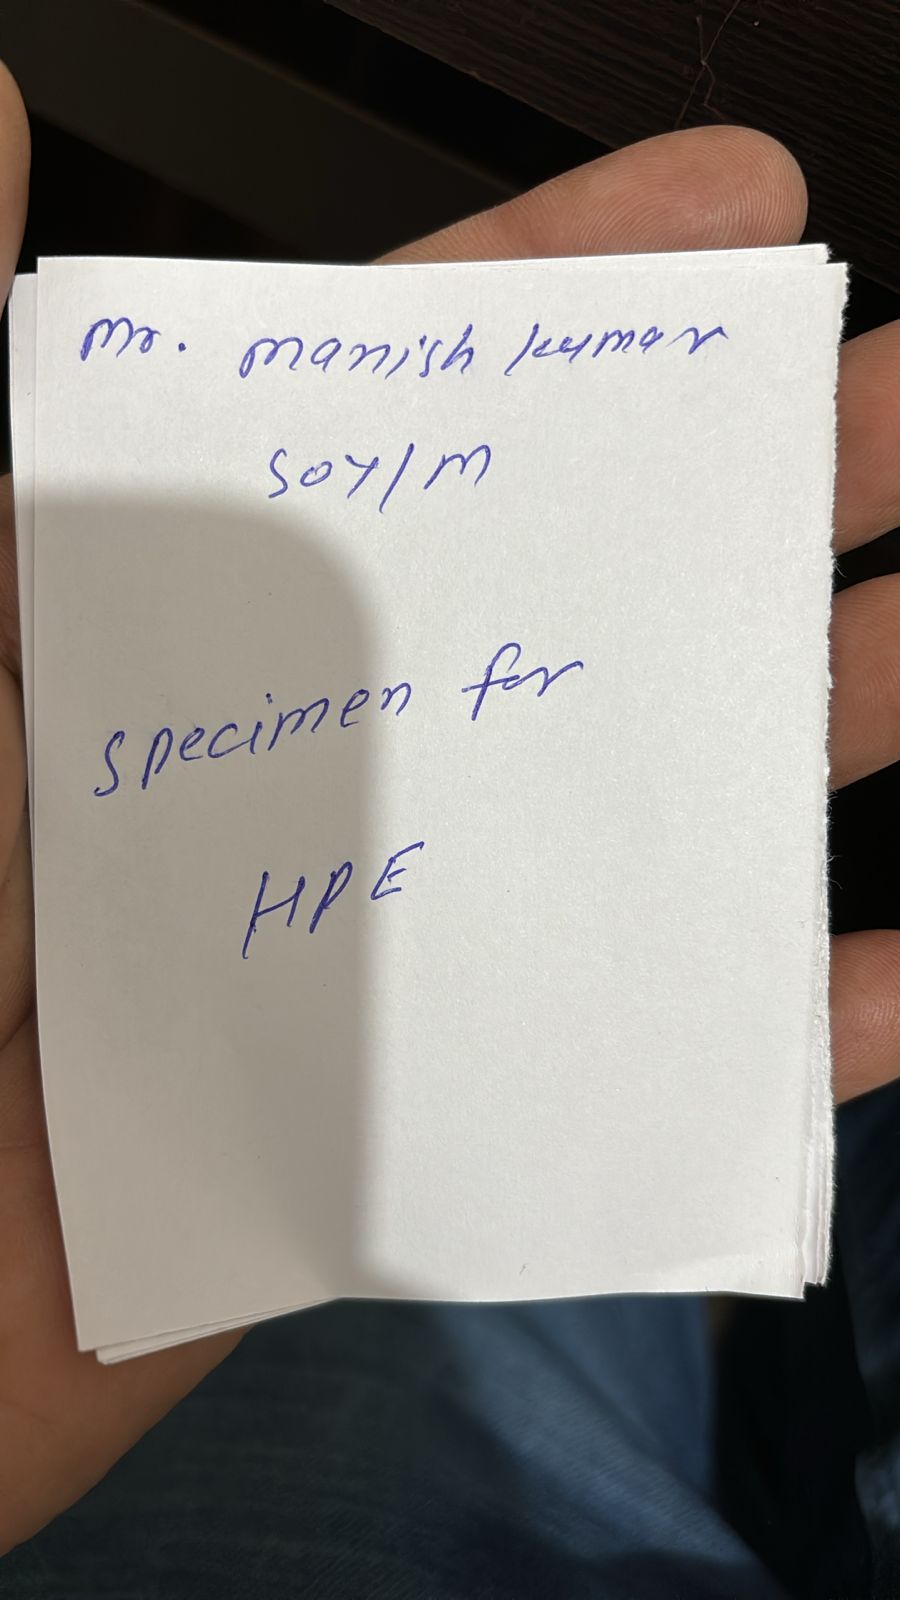 Mr. Manish Kumar
50Y/M
Specimen for
HPE